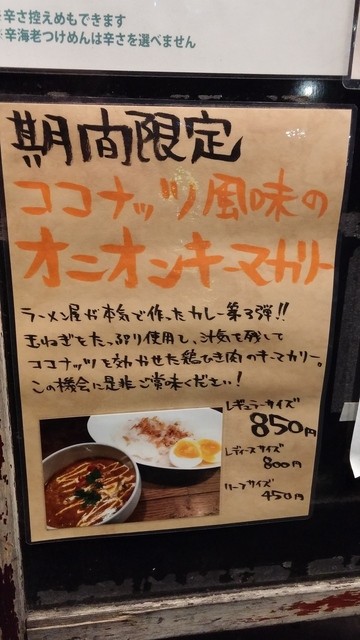 ※辛さ控えめもできます
※辛海老つけめんは辛さを選べません
期間限定
ココナッツ風味の
オニオンキーマカリー
ラーメン屋が本気で作ったカレー第3弾!!
玉ねぎをたっぷり使用し、汁気を残して
ココナッツを効かせた鶏ひき肉のキーマカリー。
この機会に是非ご賞味ください!
レギュラーサイズ
850円
レディースサイズ
800円
ハーフサイズ
450円